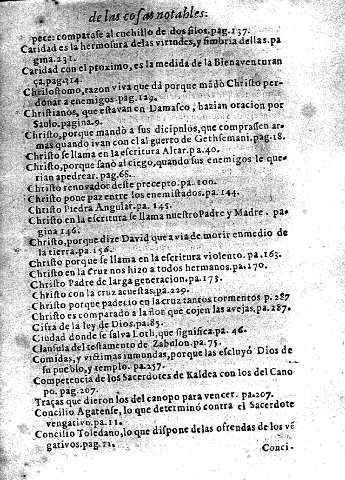 de las cosas notables.
pece: comparase al cuchillo de dos filos. pag. 137.
Caridad es la hermosura de las virtudes, y fimbria dellas. pa
gina. 231.
Caridad con el proximo, es la medida de la Bienaventuran
ça. pag. 114.
Chrisostomo, razon viva que dà porque mãdò Christo per-
donar a enemigos. pag. 129.
Christianos, que estavan en Damasco, hazian oracion por
Saulo. pagina. 9.
Christo, porque mandò a sus dicipulos, que comprassen ar-
mas quando ivan con el al guerto de Gethsemani. pag. 18.
Christo se llama en la escritura Altar. pa. 40.
Christo, porque sanò al ciego, quando sus enemigos le que-
rian apedrear. pag. 68.
Christo renovador deste precepto. pa. 100.
Christo pone paz entre los enemistados. pa. 144.
Christo Piedra Angular. pa. 145.
Christo en la escritura se llama nuestro Padre y Madre. pa-
gina 146.
Christo, porque dize David que avia de morir enmedio de
la tierra. pa. 156.
Christo porque se llama en la escritura violento. pa. 163.
Christo en la Cruz nos hizo a todos hermanos. pa. 170.
Christo Padre de larga generacion. pa. 173.
Christo con la cruz acuestas. pa. 229.
Christo porque padecio en la cruz tantos tormentos p. 287
Christo es comparado a la flor que cojen las avejas. pa. 287.
Cifra de la ley de Dios. pa. 85.
Ciudad donde se salva Loth, que significa. pa. 46.
Clausula del testamento de Zabulon. pa. 75.
Comidas, y victimas inmundas, porque las escluyò Dios de
su pueblo, y templo. pa. 257.
Competencia de los Sacerdotes de Kaldea con los del Cano
po. pag. 207.
Traças que dieron los del canopo para vencer. pa. 207.
Concilio Agatense, lo que determinò contra el Sacerdote
vengativo. pa. 11.
Concilio Toledano, lo que dispone de las ofrendas de los vẽ
gativos. pag. 11.
Conci-